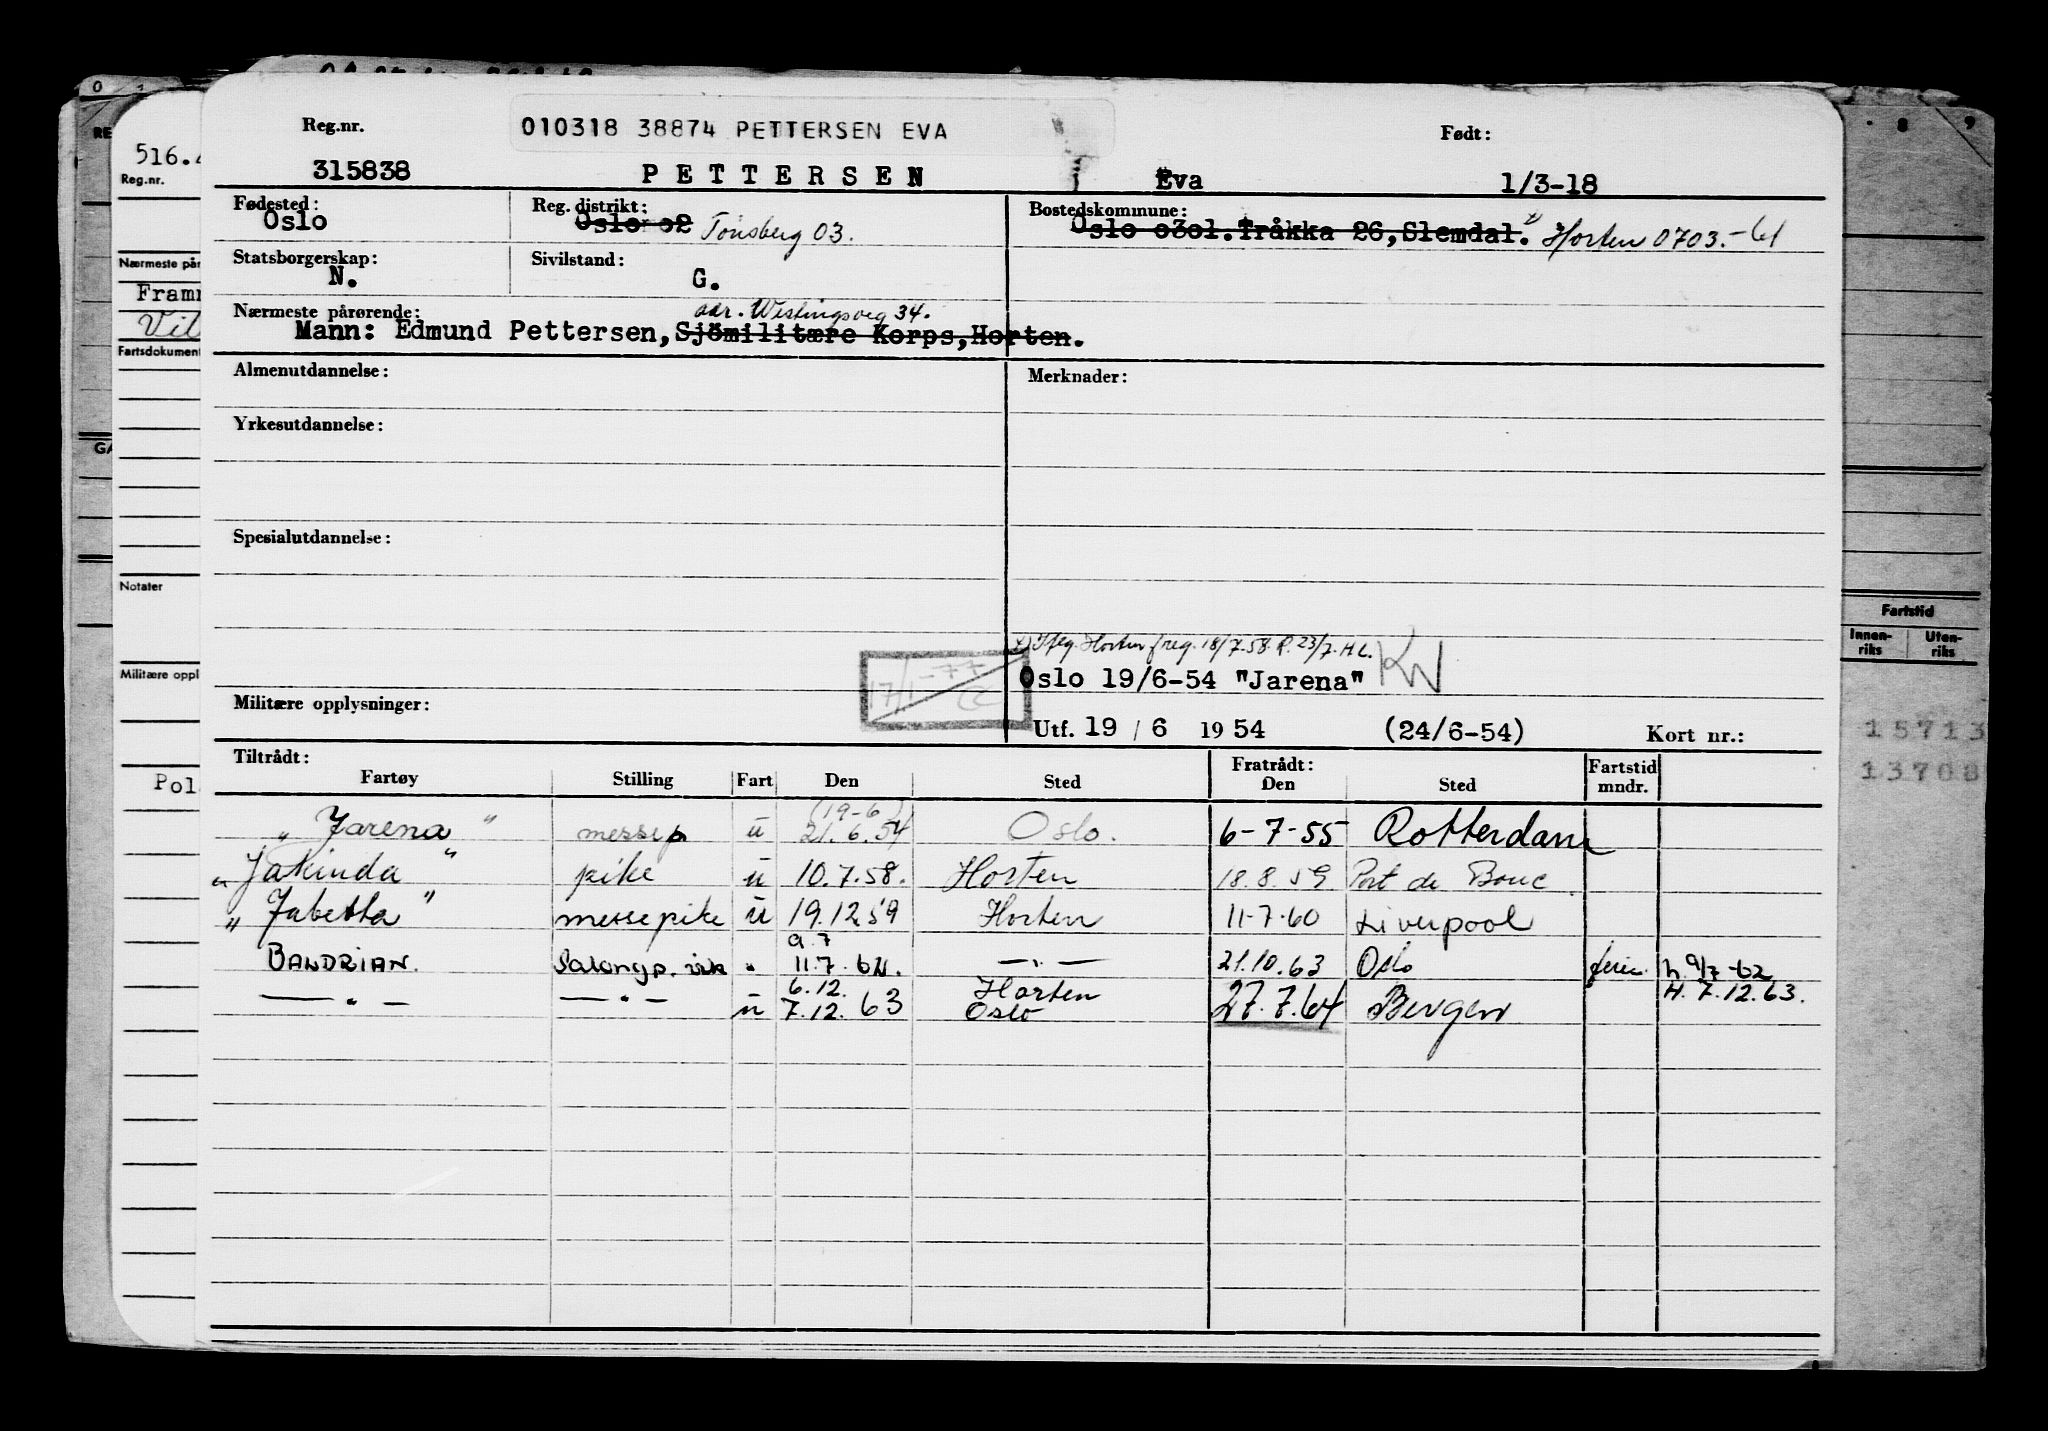 Reg.nr.
010318 38874 PETTERSEN EVA
Født:
315838 PETTERSEN Eva 1/3-18
Fødested: Reg. distrikt: Bostedskommune:
Oslo Oslo o2 Tønsberg 03. Oslo o3o1.Tråkka 26,Slemdal. x Horten 0703.-61
Statsborgerskap: Sivilstand:
N. G.
Nærmeste pårørende: adr. Westingsveg 34.
Mann: Edmund Pettersen,Sjömilitære Korps,Horten.
Almenutdannelse: Merknader:
Yrkesutdannelse:
Spesialutdannelse:
x) Horten freg. 18/7.58. R. 23/7. H.L.
17/1-77
Oslo 19/6-54 "Jarena" KW
Militære opplysninger:
Utf. 19 / 6 19 54 (24/6-54) Kort nr.:
Tiltrådt: Fratrådt: Fartstid
Fartøy Stilling Fart Den Sted Den Sted mndr.
(19-6)
"Jarena" messep u 21.6.54 Oslo. 6-7-55 Rotterdam
"Jakinda" pike u 10.7.58. Horten 18.8.59 Port de Bouc
"Jabetta" messepike u 19.12.59 Horten 11-7-60 Liverpool
9.7
BALDRIAN. Salongp. " 11.7.62. —"— 21.10.63 Oslo ferie. h. 9/7-62
6.12. Horten H. 7.12.63.
—"— —"— u 7.12.63 Oslo 27.7.64 Bergen
516.
Reg.nr.
Nærmeste på
Fram
Vil
Fartsdokument
Notater
Militære oppl
Pol
RE
GA
8 9
Fartstid
Innen-
riks
Uten-
riks
15713
13708